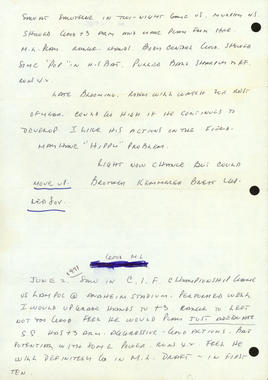 SAW AT IN TWI-NIGHT GAME VS. MURPHY VS.
SHOWED GOOD +3 ARM AND MADE PLAY FROM HOLE.
M.L. PLAY. RANGE. HANDS. BODY CONTROL GOOD. SHOWED
SOME "POP" IN HIS BAT. PULLED BALL SHARPLY TO RF.
RUNS 4X.
LATE BLOOMING. WILL WATCH FOR REST
OF YEAR. COULD GO HIGH IF HE CONTINUES TO
DEVELOP. I LIKE HIS ACTIONS ON THE FIELD.
MAY HAVE "HIPPY" PROBLEM.
RIGHT NOW CHANCE BUT COULD
MOVE UP. BROTHER
GOOD M.L.
JUNE 2, 1977 SAW IN C.I.F. CHAMPIONSHIP GAME
VS LOMPOC @ ANAHEIM STADIUM. PERFORMED WELL
I WOULD UPGRADE HANDS TO +3 RANGE TO LEFT
NOT TOO GOOD. FEEL HE WOULD PLAY JUST ADEQUATE
S.S HAS +3 ARM. AGGRESSIVE - GOOD ACTIONS. BAT
POTENTIAL WITH SOME POWER. RUNS 4X. FEEL HE
WILL DEFINITELY GO IN M.L. DRAFT - IN FIRST
TEN.